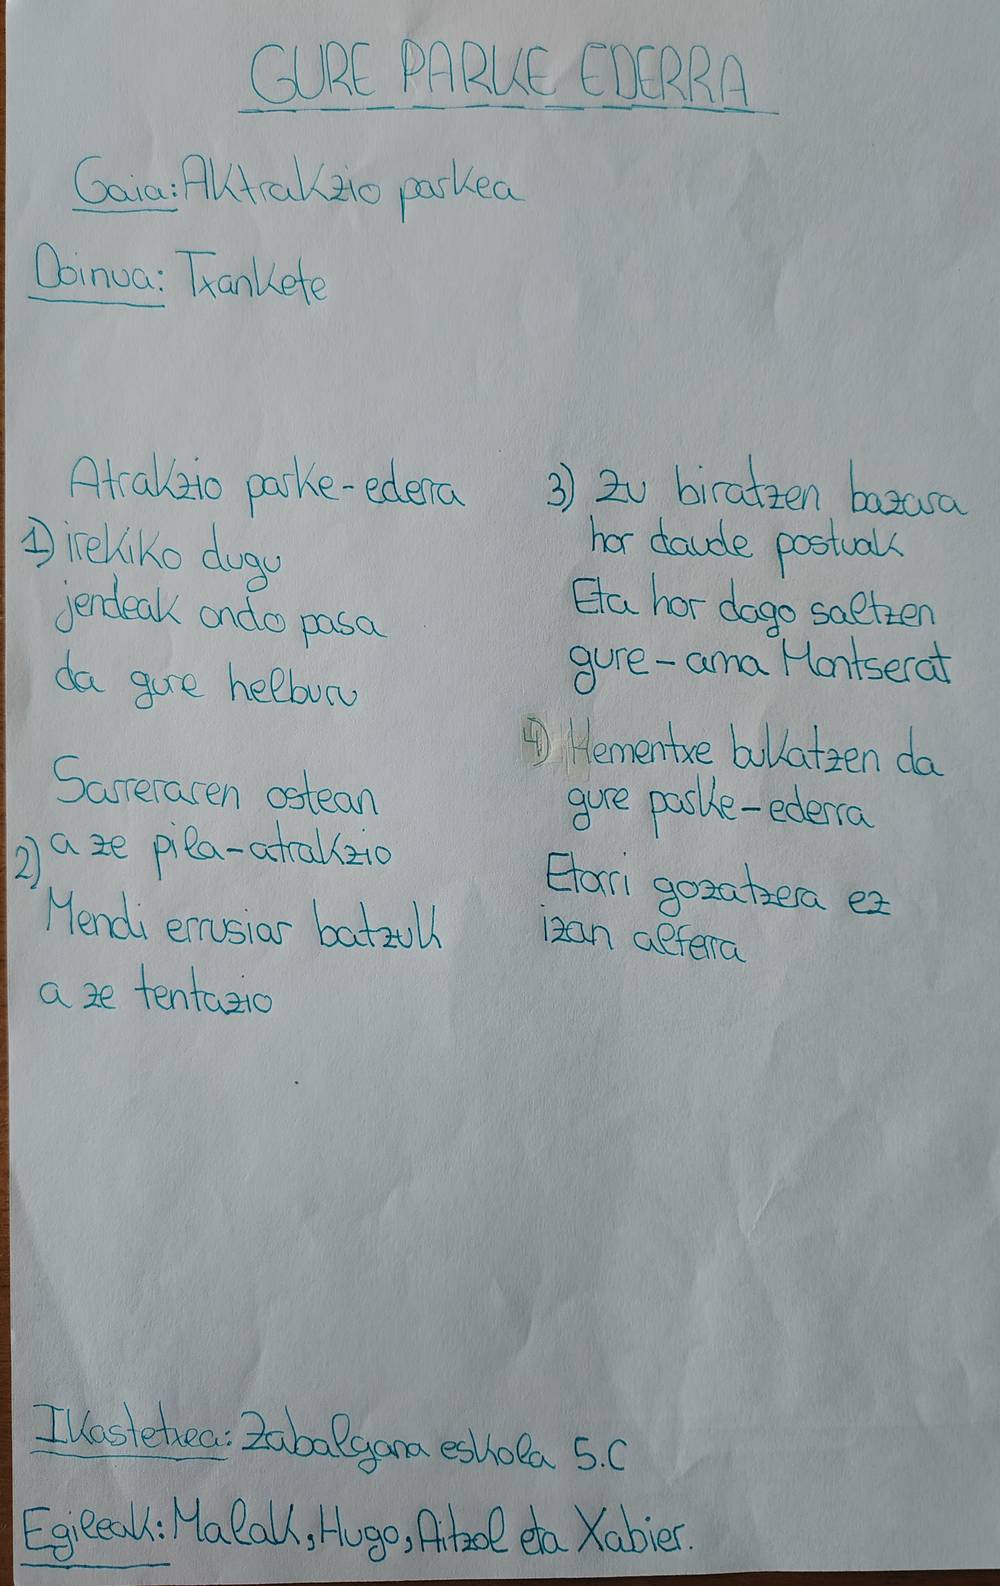 GURE PARKE EDERRA
Gaia: Aktrakzio parkea
Doinua: Txankete
Atrakzio parke-ederra
1) irekiko dugu
jendeak ondo pasa
da gure helburu
Sarreraren ostean
2) a ze pila-atrakzio
Mendi errusiar batzuk
a ze tentazio
3) zu biratzen bazara
hor daude postuak
Eta hor dago saltzen
gure-ama Montserat
4) Hementxe bukatzen da
gure parke-ederra
Etorri gozatzera ez
izan alferra
Ikastetxea: Zabalgana eskola 5.C
Egileak: Malak, Hugo, Aitzol eta Xabier.